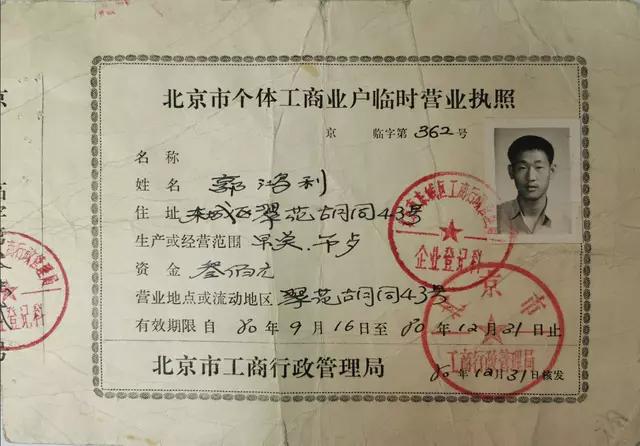 北京市个体工商业户临时营业执照
京 临字第362号
名称
姓名 郭鸿利
住址 东城区翠花胡同43号
生产或经营范围
资金 叁佰元
营业地点或流动地区 翠花胡同43号
有效期限自80年9月16日至80年12月31日止
北京市工商行政管理局 80年12月31日核发
东城区工商行政管理局
企业登记科
北京市
工商行政管理局
登记科